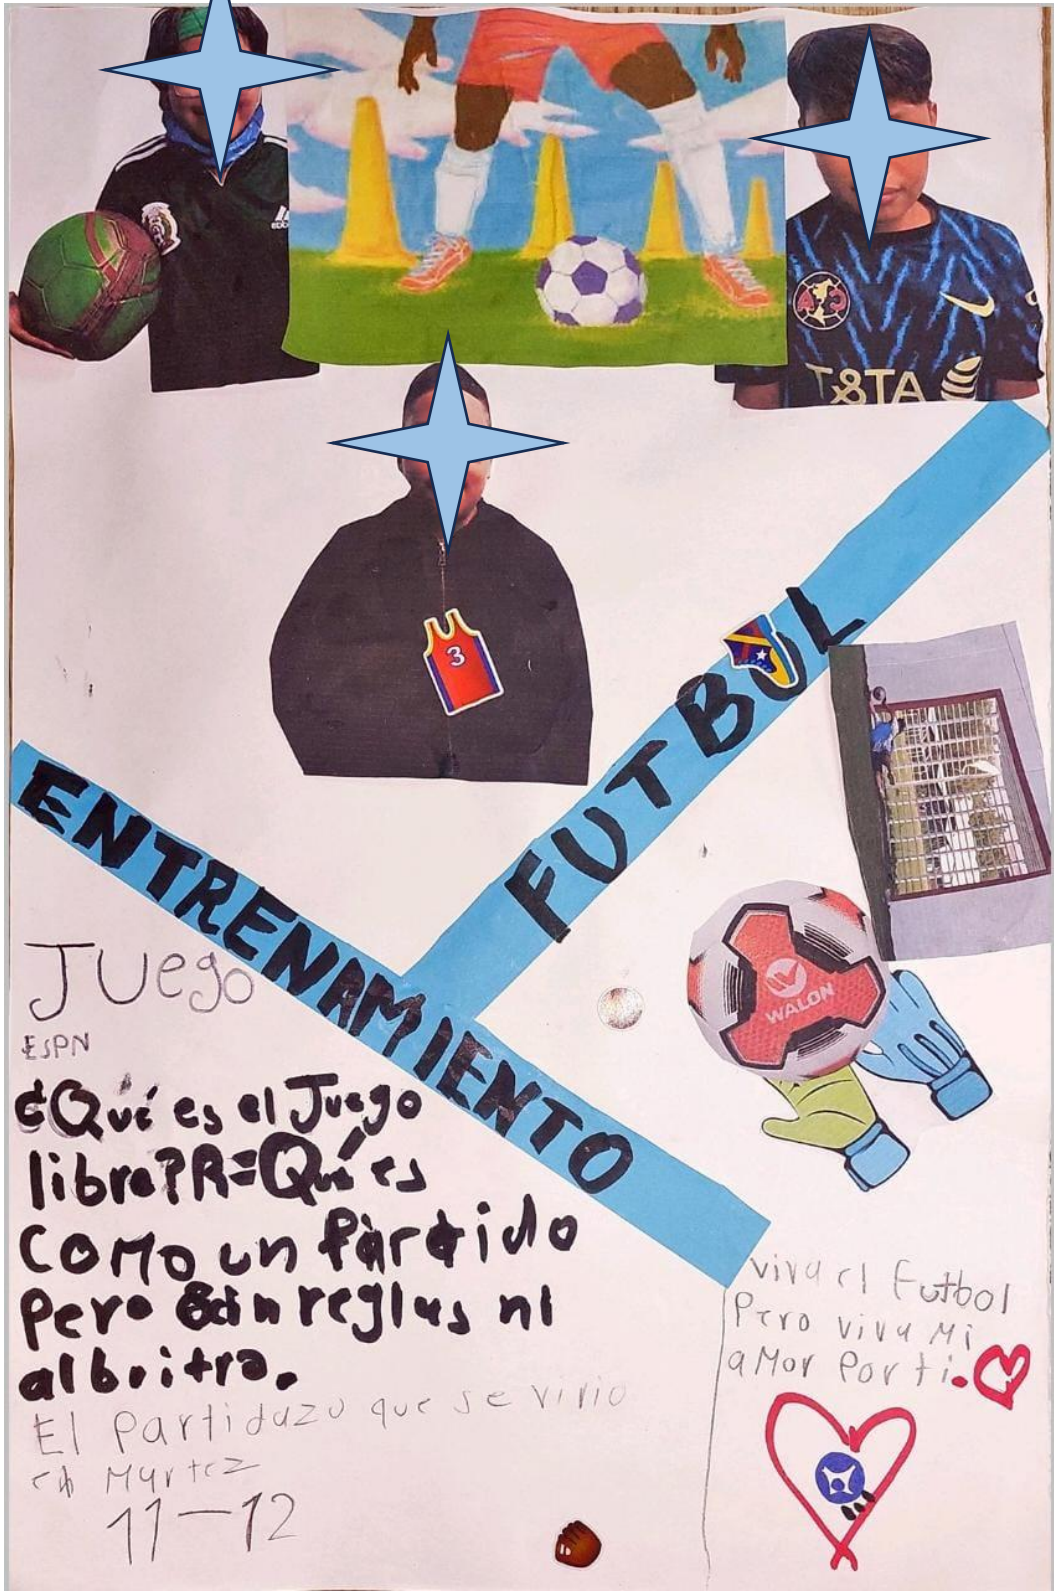 T&TA
3
FUTBOL
ENTRENAMIENTO
WALON
Juego
ESPN
¿Qué es el Juego
libre?R=Qué es
Como un Partido
Pero sin reglas ni
albritra.
El Partidazo que se vivio
en Martez
11-12
viva el Futbol
Pero viva Mi
aMor Por ti.